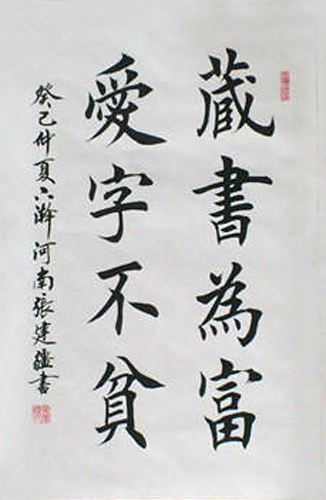 藏書為富
愛字不貧
癸巳仲夏 河南張建 書